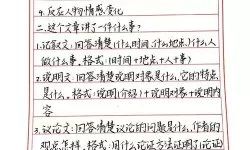 4.反应人物情感变化
二.这个文章讲了一件什么事?
1.记叙文:回答清楚什么时间,什么地点,什么人
做什么事。格式:时间+地点+人+事)
2.说明文:回答清楚说明对象是什么,它的特点
是什么。格式:说明(介绍)+说明对象+说明内
容
3.议论文:回答清楚议论的问题是什么,作者的
观点怎样。格式:用什么论证方法证明了(论证了